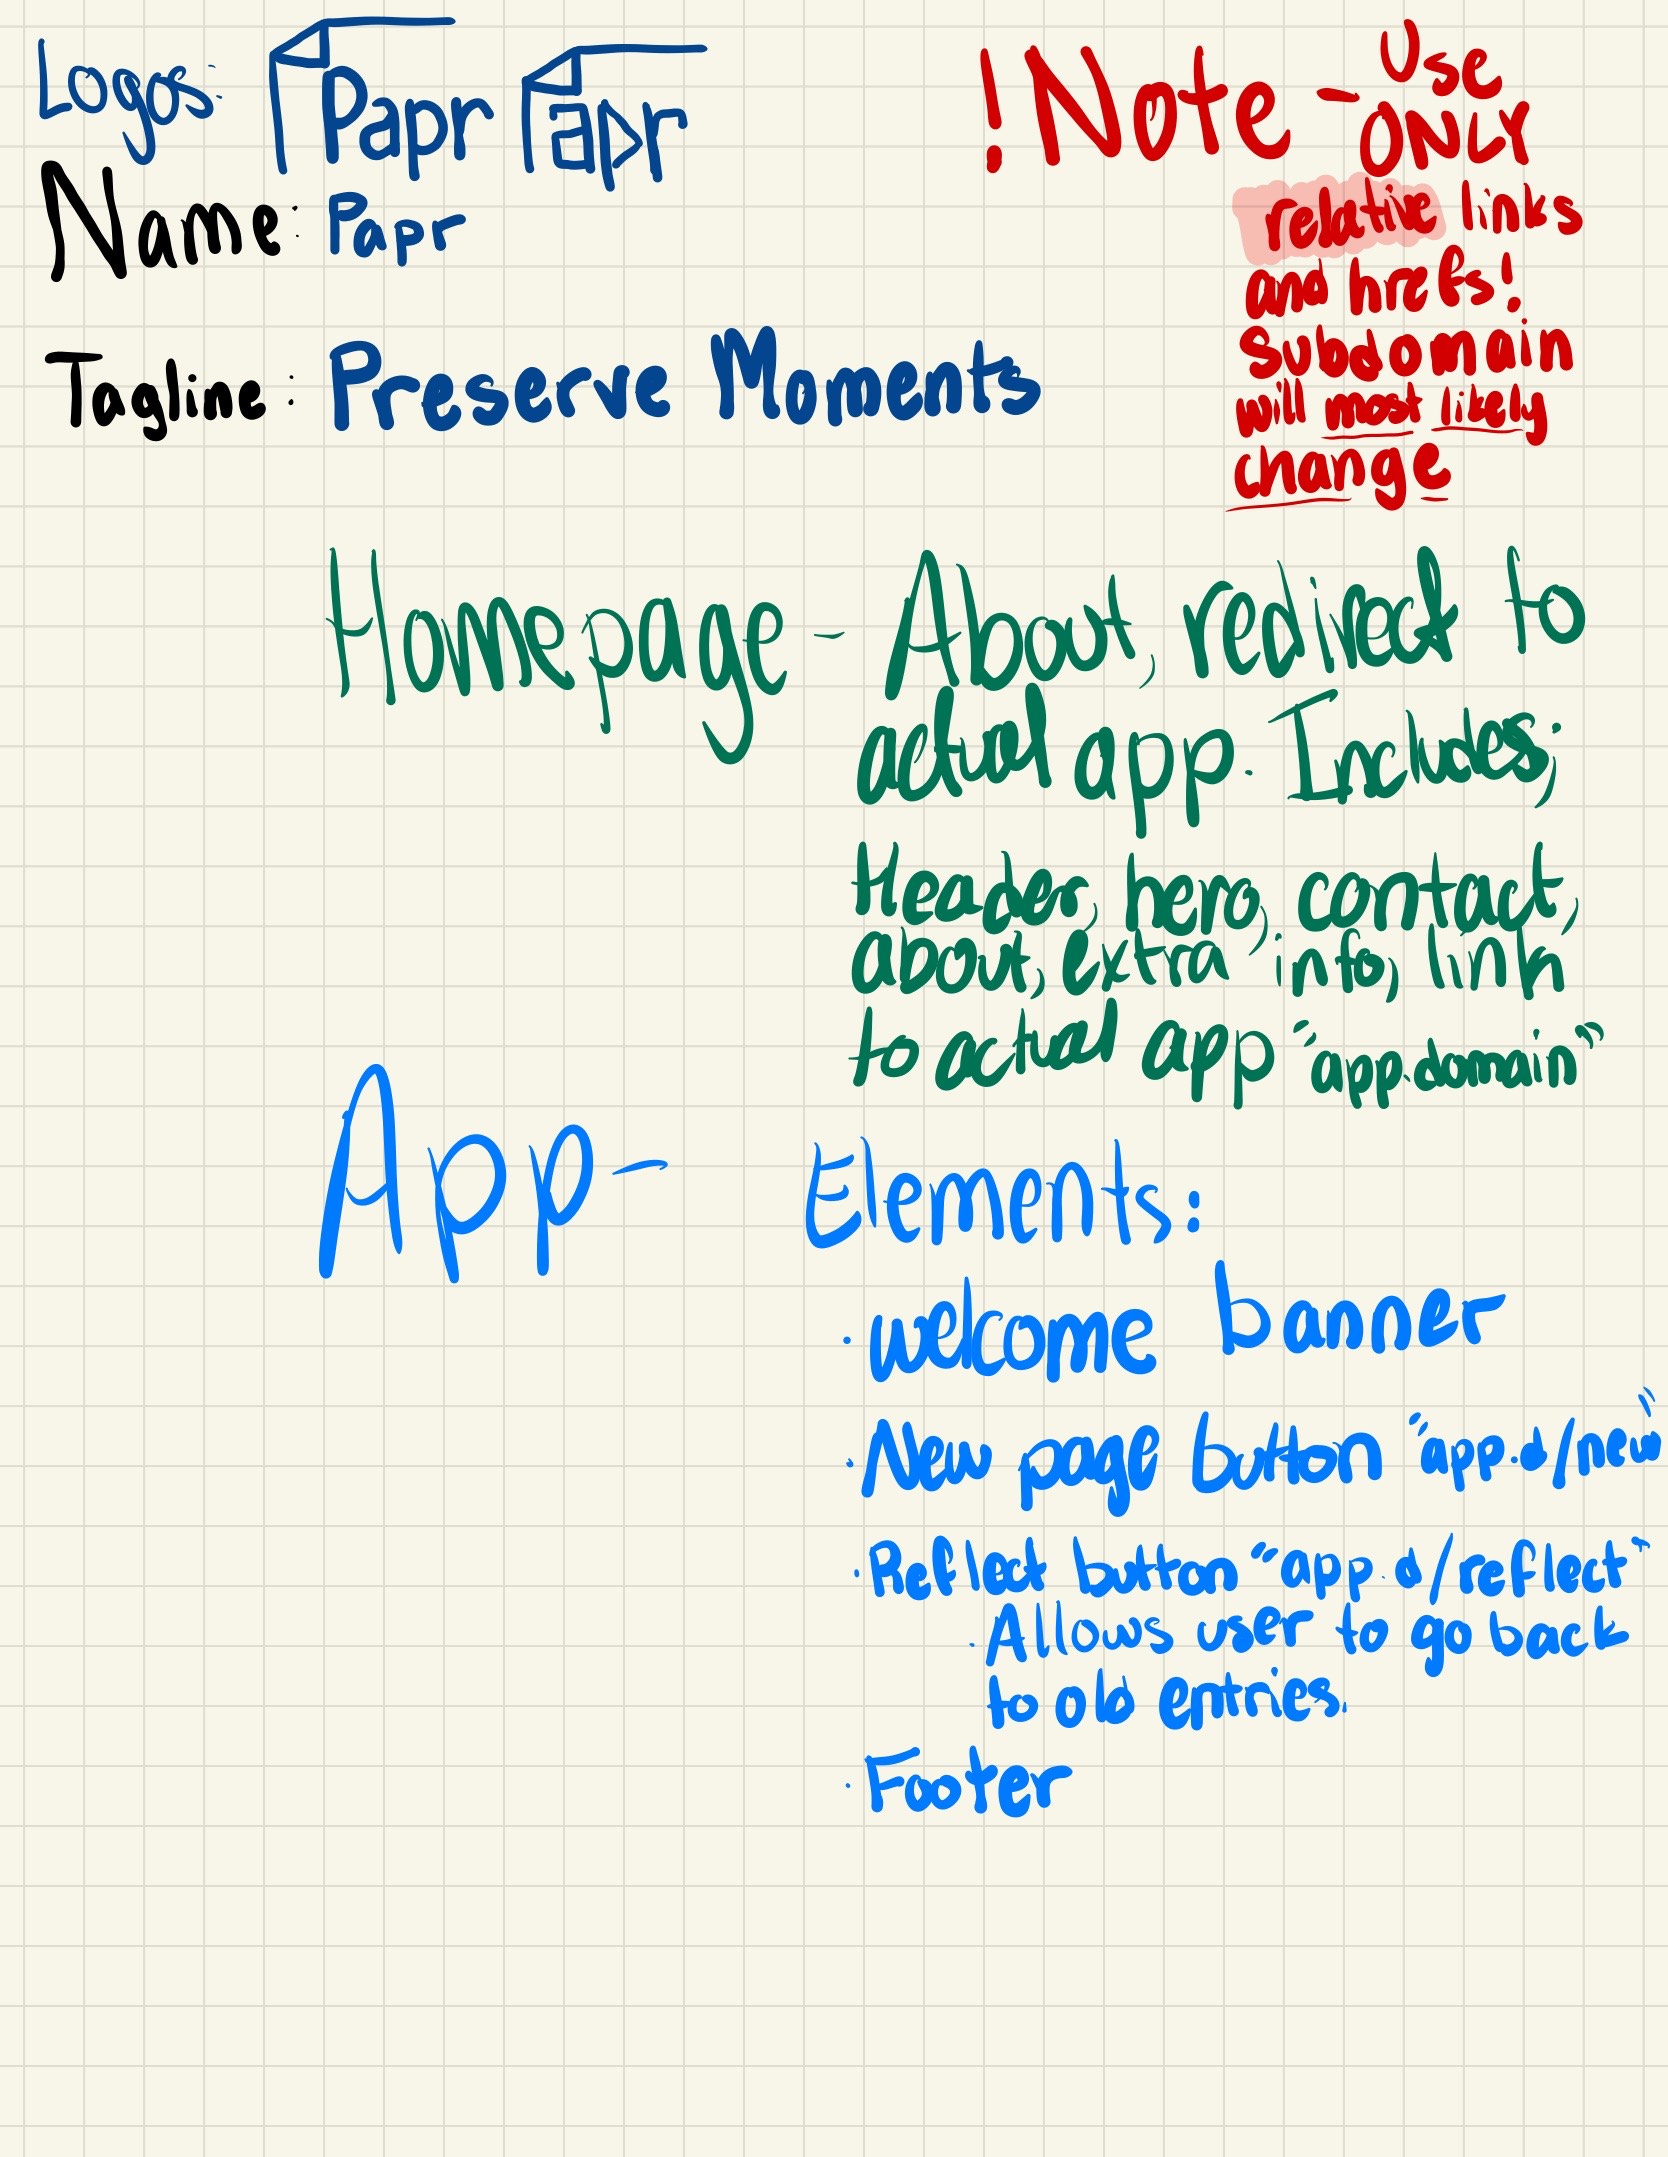 Logos: Papr apr
Name: Papr
Tagline: Preserve Moments
! Note - Use
ONLY
relative links
and hrefs!
Subdomain
will most likely
change
Homepage - About, redirect to
actual app. Includes;
Header, hero, contact,
about, extra info, link
to actual app "app.domain"
App-
Elements:
· welcome banner
· New page button "app.d/new"
· Reflect button "app.d/reflect"
· Allows user to go back
to old entries.
· Footer